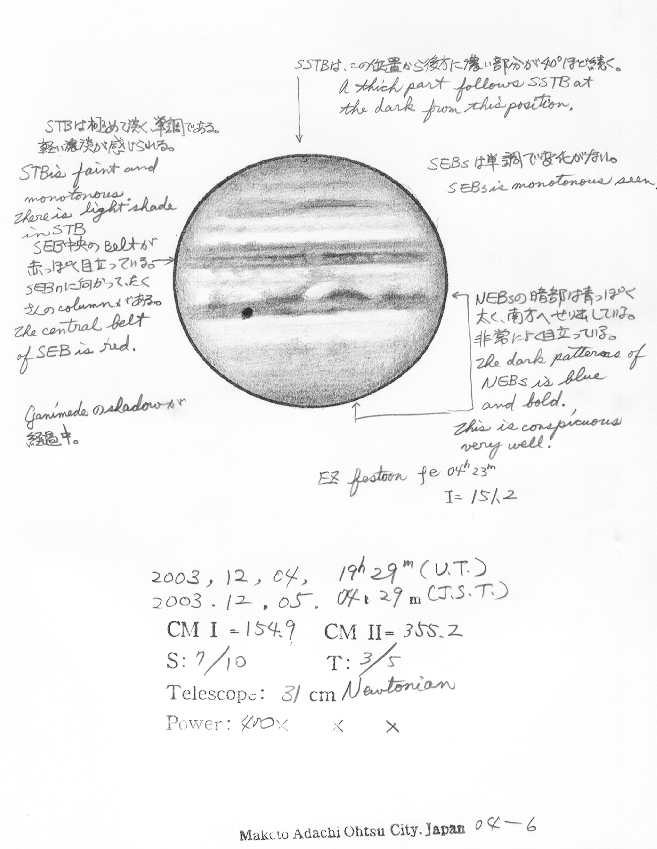 SSTBは、この位置から後方に濃い部分が40°ほど続く。
A thick part follows SSTB at
the dark from this position.
STBは極めて淡く、単調である。
軽い濃淡が感じられる。
STB is faint and
monotonous.
There is light shade
in STB
SEBsは単調で変化がない。
SEBs is monotonous seen.
SEB中央のBeltが
赤っぽく目立っている。
SEBnに向かって、たく
さんのcolumnがある。
The central belt
of SEB is red.
NEBsの暗部は青っぽく
太く、南方へせり出している。
非常によく目立っている。
The dark patterns of
NEBs is blue
and bold.
This is conspicuous
very well!
Ganimedeのshadowが
経過中。
EZ festoon fe 04h 23m
I = 151.2
2003, 12, 04, 19h 29m (U.T.)
2003. 12, 05. 04: 29m (J.S.T.)
CM I = 154.9 CM II = 355.2
S: 7/10 T: 3/5
Telescope: 31 cm Newtonian
Power: 400× × ×
Makoto Adachi Ohtsu City. Japan 04-6